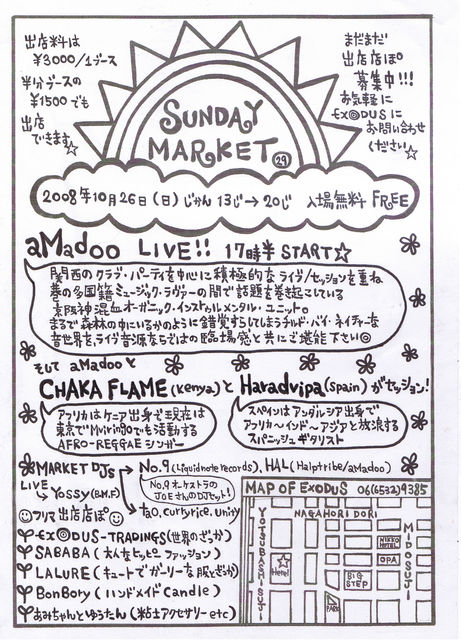 出店料は
¥3000/1ブース
半分ブースの
¥1500でも
出店
できます☆
まだまだ
出店店ぽ
募集中!!!
お気軽に
EXODUSに
お問い合わせ
ください☆
SUNDAY
MARKET 29
2008年10月26日(日)じかん13じ→20じ 入場無料 FREE
aMadoo LIVE!! 17時半START☆
関西のクラブ・パーティを中心に積極的なライヴ/セッションを重ね
の多国籍ミュージック・ラヴァーの間で話題を巻き起こしている
京阪神混血オーガニック・インストゥルメンタル・ユニット。
まるで森林の中にいるかのように錯覚すらしてしまうチルド・バイ・ネイチャーな
音世界を、ライヴ音源ならではの臨場感と共にご堪能下さい◎
そして aMadooと
CHAKA FLAME(kenya)と Haradvipa(spain)がセッション!
アフリカはケニア出身で現在は
東京でMwiringoでも活動する
AFRO-REGGAE シンガー
スペインはアンダルシア出身で
アフリカ〜インド〜アジアと放浪する
スパニッシュギタリスト
MARKET DJs → No.9(Liquidnote records), HAL(Halptribe/aMadoo)
No.9オーケストラの
JOEさんのDJセット!
LIVE
→ YOSSY(B.M.F) → tao, curlyrice, unity
フリマ出店店ぽ
EXODUS-TRADINGS(世界のざっか)
SABABA(大人なヒッピーファッション)
LALURE(キュートでガーリーな服とざっか)
BonBory(ハンドメイドCandle)
あみちゃんとゆうたん(粘土アクセサリーetc)
MAP OF EXODUS 06(6532)9385
NAGAHORI DORI
YOTSUBASHI SUJI
MIDO SUJI
NIKKO HOTEL
OPA
☆Here!
BIG STEP
PARK